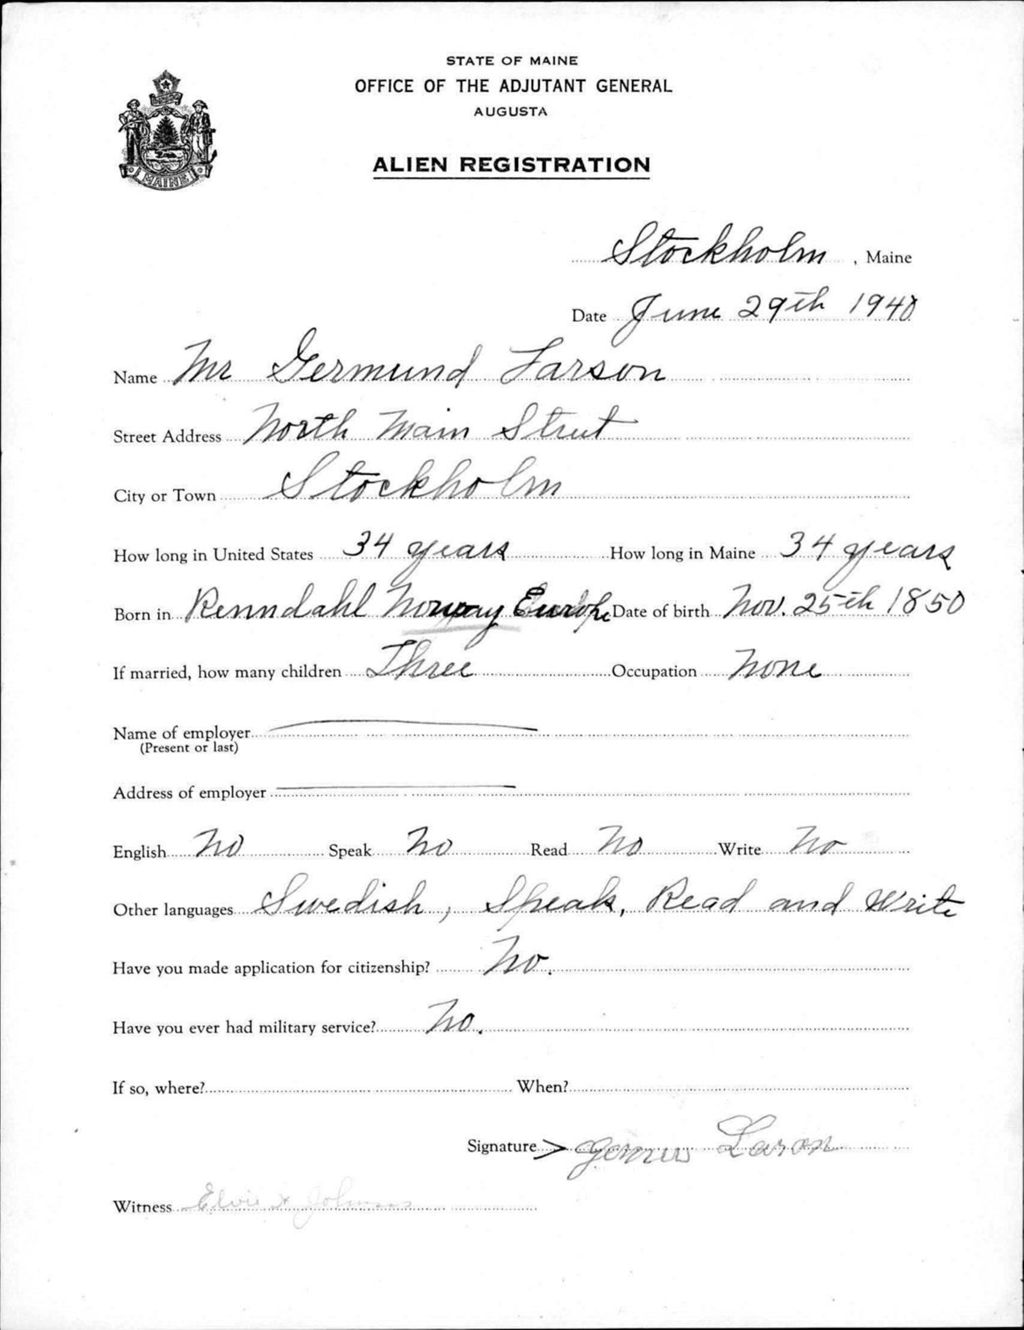 STATE OF MAINE
OFFICE OF THE ADJUTANT GENERAL
AUGUSTA
ALIEN REGISTRATION
MAINE
Stockholm, Maine
Date June 29th 1940
Name Mr Germund Larson
Street Address North Main Street
City or Town Stockholm
How long in United States 34 years How long in Maine 34 years
Born in Renndahl Norway Europe Date of birth Nov. 25th 1850
If married, how many children Three Occupation None
Name of employer
(Present or last)
Address of employer
English No Speak No Read No Write No
Other languages Swedish, Speak, Read and Write
Have you made application for citizenship? No.
Have you ever had military service? No.
If so, where? When?
Signature Larson
Witness